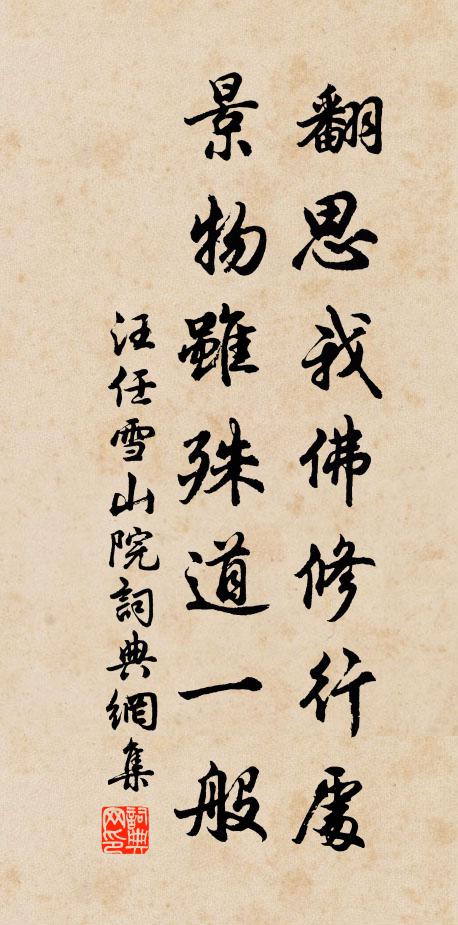 翻思我佛修行處
景物雖殊道一般
汪任雪山院詞典網集
詞典网印